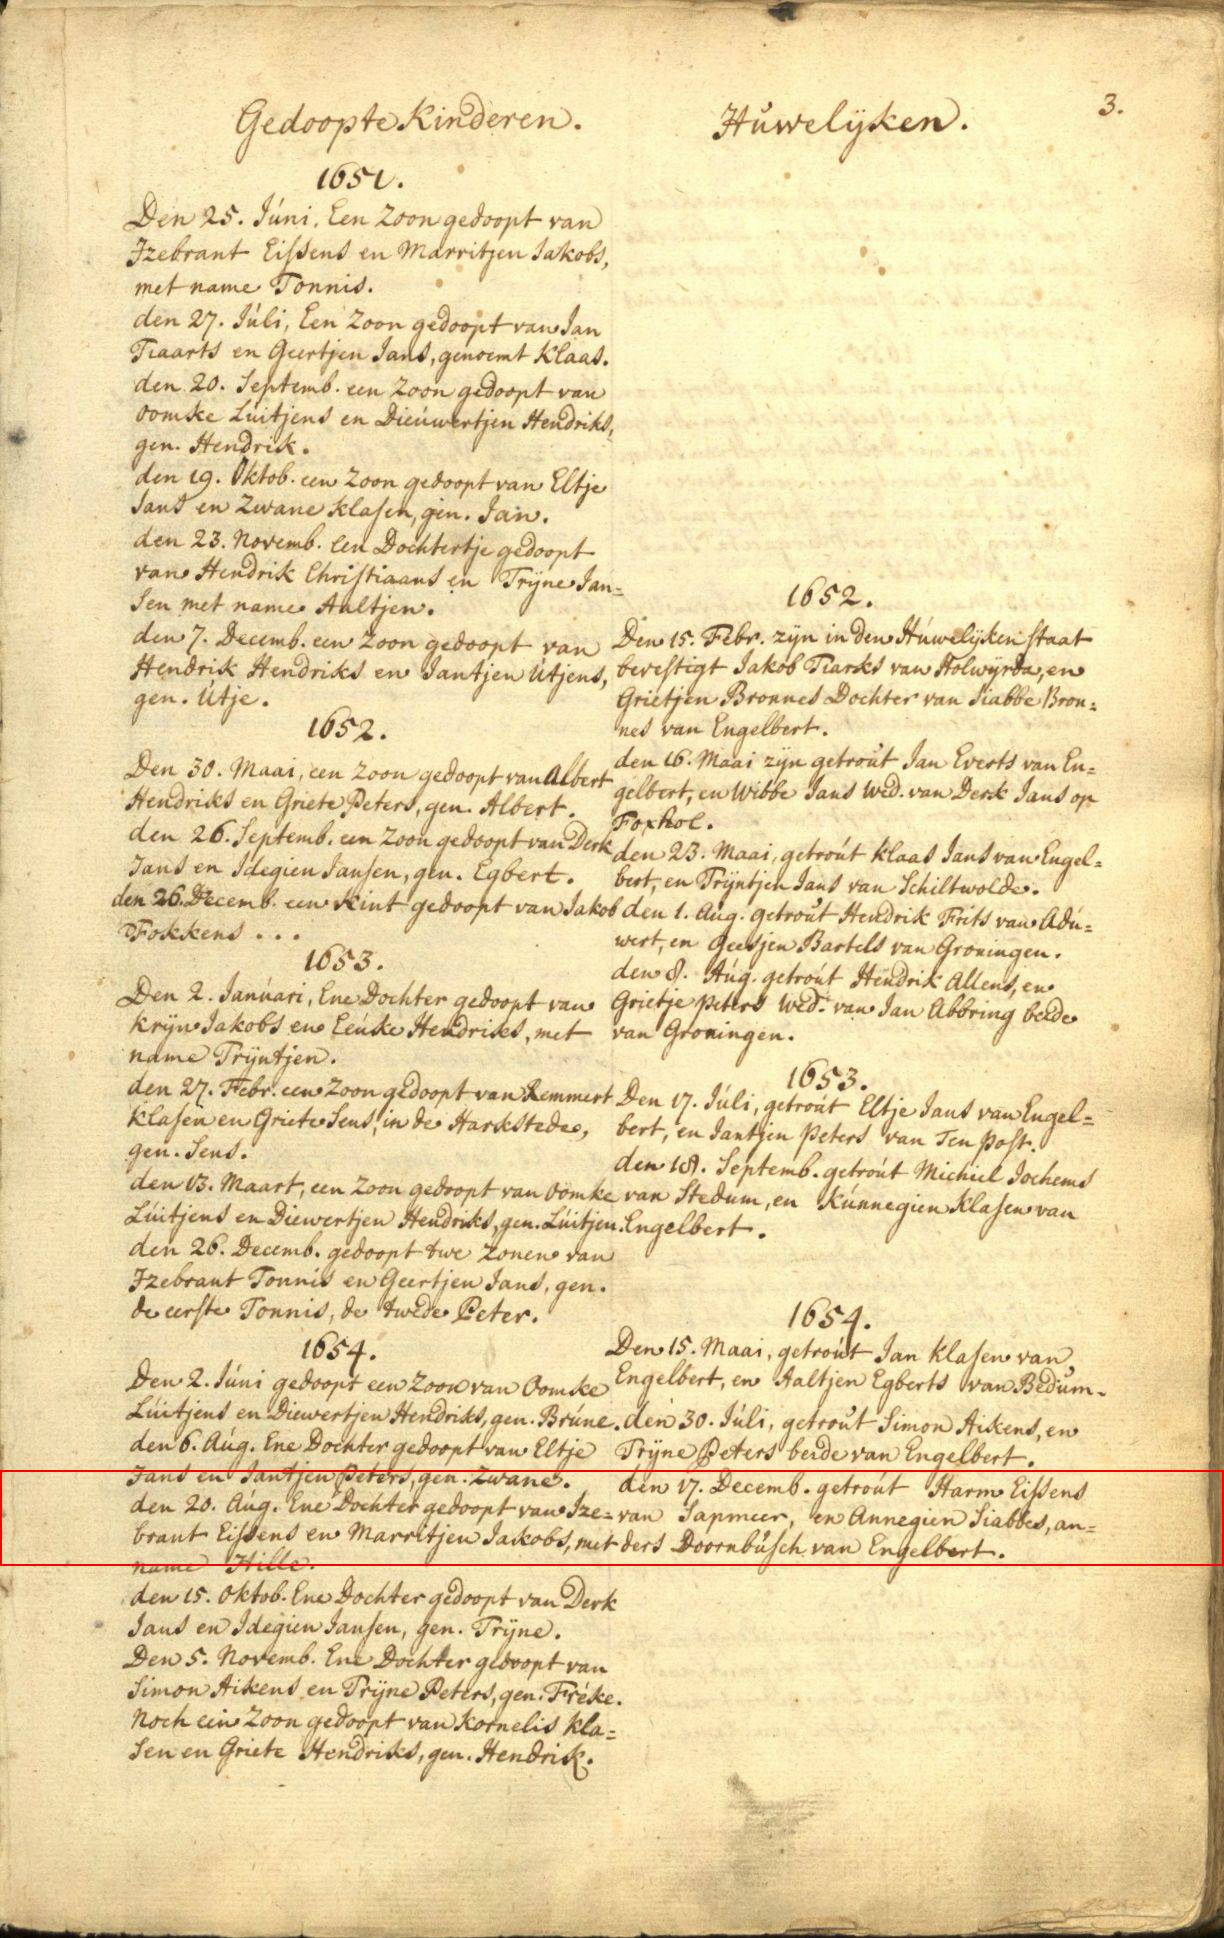 3.
Gedoopte Kinderen.
1651.
Den 25. Júni. Een Zoon gedoopt van
Izebrant Eissens en Marritjen Jakobs,
met name Tonnis.
den 27. Júli, Een Zoon gedoopt van Jan
Tiaarts en Geertjen Jans, genoemt Klaas.
den 20. Septemb. een Zoon gedoopt van
Oomke Lúitjens en Dieúwertjen Hendriks,
gen. Hendrik.
den 19. Oktob. een Zoon gedoopt van Eltje
Jans en Zwane Klasen, gen. Jan.
den 23. Novemb. Een Dochtertje gedoopt
van Hendrik Christiaans en Trijne Jan=
sen met name Aaltjen.
den 7. Decemb. een Zoon gedoopt van
Hendrik Hendriks en Jantjen Utjens,
gen. Utje.
1652.
Den 30. Maai, een Zoon gedoopt van Albert
Hendriks en Griete Peters, gen. Albert.
den 26. Septemb. een Zoon gedoopt van Derk
Jans en Idegien Jansen, gen. Egbert.
den 26. Decemb. een Kint gedoopt van Jakob
Fokkens . . .
1653.
Den 2. Janúari, Ene Dochter gedoopt van
Krijn Jakobs en Eeúke Hendriks, met
name Trijntjen.
den 27. Febr. een Zoon gedoopt van Remmert
Klasen en Griete Sens, in de Harkstede,
gen. Sens.
den 13. Maart, een Zoon gedoopt van Oomke
Lúitjens en Diewertjen Hendriks, gen. Lúitjen.
den 26. Decemb. gedoopt twe Zonen van
Izebrant Tonnis en Geertjen Jans, gen.
de eerste Tonnis, de twede Peter.
1654.
Den 2. Júni gedoopt een Zoon van Oomke
Lúitjens en Diewertjen Hendriks, gen. Brúne.
den 6. Aúg. Ene Dochter gedoopt van Eltje
Jans en Jantjen Peters, gen. Zwane.
den 20. Aúg. Ene Dochter gedoopt van Ize=
brant Eissens en Marritjen Jakobs, met
name Hille.
den 15. Oktob. Ene Dochter gedoopt van Derk
Jans en Idegien Jansen, gen. Trijne.
Den 5. Novemb. Ene Dochter gedoopt van
Simon Aikens en Trijne Peters, gen. Fréke.
Noch ein Zoon gedoopt van Kornelis Kla=
sen en Griete Hendriks, gen. Hendrik.
Húwelijken.
1652.
Den 15. Febr. zijn in den Húwelijken staat
bevestigt Jakob Tiarks van Holwijrda, en
Grietjen Bronnes Dochter van Siabbe Bron=
nes van Engelbert.
den 16. Maai zijn getroút Jan Everts van En=
gelbert, en Wibbe Jans Wed. van Derk Jans op
Foxhol.
den 23. Maai, getroút Klaas Jans van Engel=
bert, en Trijntjen Jans van Schiltwolde.
den 1. Aúg. getroút Hendrik Frits van Adú=
wert, en Geesjen Bartels van Groningen.
den 8. Aúg. getroút Hendrik Allens, en
Grietje Peters Wed. van Jan Abbring beide
van Groningen.
1653.
Den 17. Júli, getroút Eltje Jans van Engel=
bert, en Jantjen Peters van Ten Post.
den 18. Septemb. getroút Michiel Jochems
van Stedum, en Kúnnegien Klasen van
Engelbert.
1654.
Den 15. Maai, getroút Jan Klasen van
Engelbert, en Aaltjen Egberts van Bedum.
den 30. Júli, getroút Simon Aikens, en
Trijne Peters beide van Engelbert.
den 17. Decemb. getroút Harm Eissens
van Sapmeer, en Annegien Siabbes, an=
ders Doornbúsch van Engelbert.